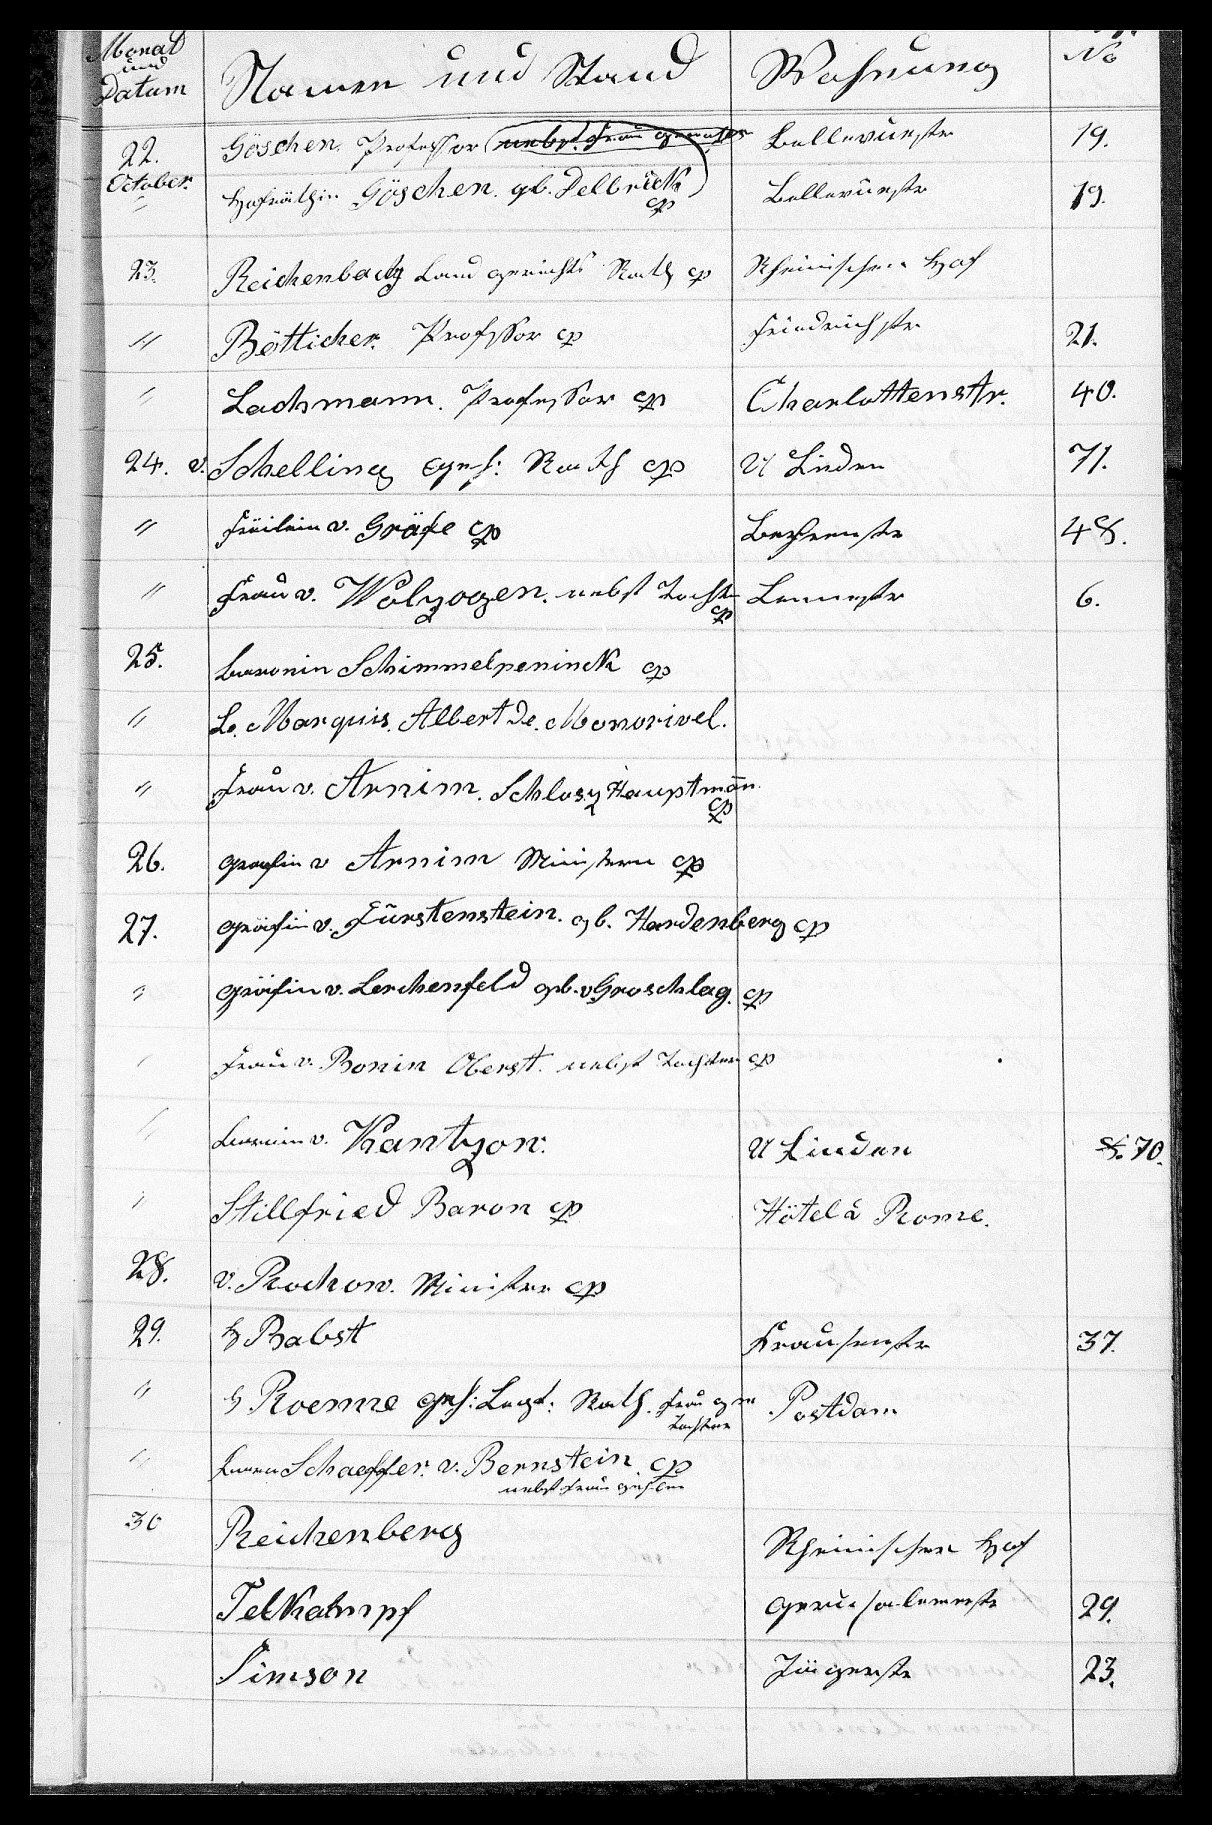 Monat und Datum Namen und Stand Wohnung No
22. October. Göschen. Professor nebst Frau Gemahlin Bellevuestr 19.
" Hofräthin Göschen. gb. Delbrück cp Bellevuestr 19.
23. Reichenbach Land gerichts Rath cp Rheinischen Hof
" Bötticher. Professor cp Friedrichstr. 21.
" Lachmann. Professor cp Charlottenstr. 40.
24. v. Schelling Geh: Rath cp U Linden 71.
" Fräulein v. Gräfe cp Behrenstr 48.
" Frau v. Wolzogen. nebst Tochter cp Lennestr 6.
25. Baronin Schimmelpeninck cp
" Le. Marquis. Albert de.
" Frau v. Arnim. Schlosz Hauptmañ. cp
26. Gräfin v Arnim Ministern cp
27. Gräfin v. Fürstenstein. gb. Hardenberg cp
" Gräfin v. Lerchenfeld gb. v Groschlag. cp
" Frau v. Bonin Oberst. nebst Tochter cp
" Baronin v. Kantzon. U Linden 70.
" Stillfried Baron cp Hötel à Rome.
28. v. Rochow. Minister cp
29. H Babst Krausenstr 37.
" H Roenne Geh: Legt: Rath. Frau Tochter Postdam
" Baron Schaeffer. v. Bernstein. cp
nebst Frau Gemahlin
30 Reichenberg Rheinischen Hof
Telkampf Gerusalemerstr 29.
Simson Jägerstr 23.